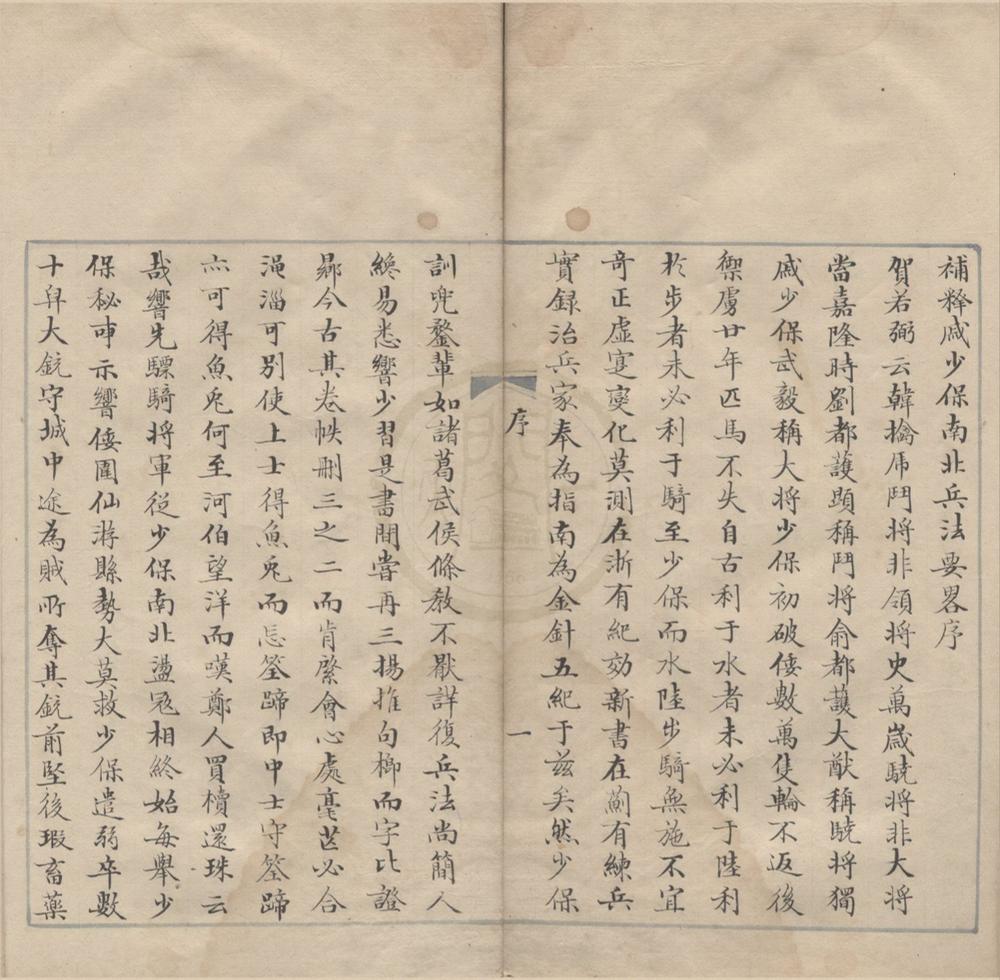 補釋戚少保南北兵法要畧序
賀若弼云韓擒虎鬥將非領將史萬歲驍將非大將
當嘉隆時劉都護顯稱鬥將俞都護大猷稱驍將獨
戚少保武毅稱大將少保初破倭數萬隻輪不返後
禦虜廿年匹馬不失自古利于水者未必利于陸利
於步者未必利于騎至少保而水陸步騎無施不宜
奇正虛寔變化莫測在浙有紀効新書在薊有練兵
實録治兵家奉為指南為金針五紀于兹矣然少保
序
一
訓兜鍪輩如諸葛武侯條教不厭詳復兵法尚簡人
纔易悉響少習是書間嘗再三揚搉句櫛而字比證
鄉今古其卷帙刪三之二而肯綮會心處毫芒必合
渑淄可別使上士得魚兎而忘筌蹄即中士守筌蹄
亦可得魚兎何至河伯望洋而嘆鄭人買櫝還珠云
哉響先驃騎將軍從少保南北盪寇相終始每舉少
保秘一示響倭圍仙游縣勢大莫救少保遣弱卒數
十舁大銃守城中途為賊所奪其銃前堅後瑕畜藥